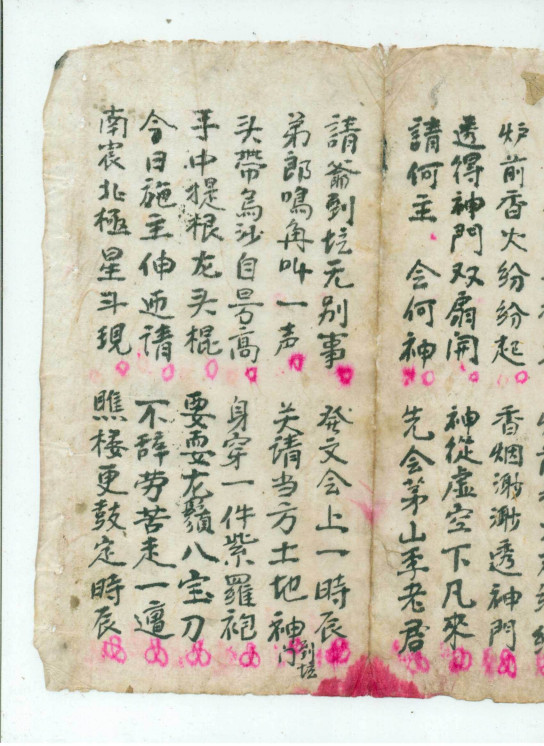 炉前香火纷纷起 香烟渺渺透神門
透得神門双扇開 神從虚空下凡來
請何主 会何神 先会茅山李老君
請爺到坛无别事 發文会上一時辰
弟郎鳴角叫一声 关請当方土地神
门 到坛
头帶烏沙自号高 身穿一件紫羅袍
手中提根龙头棍 要耍龙鬚八宝刀
今日施主伸迎請 不辞劳苦走一遭
南宸北極星斗現 瞧楼更鼓定時辰